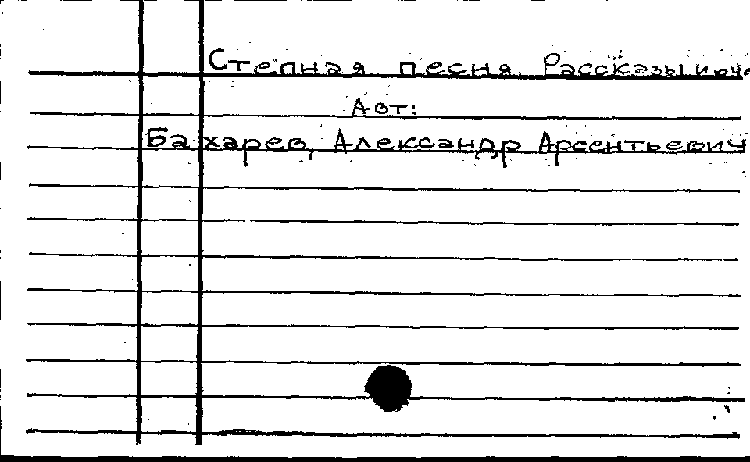 Степная песня Рассказы и оч
Авт:
Бахарев, Александр Арсентьевич